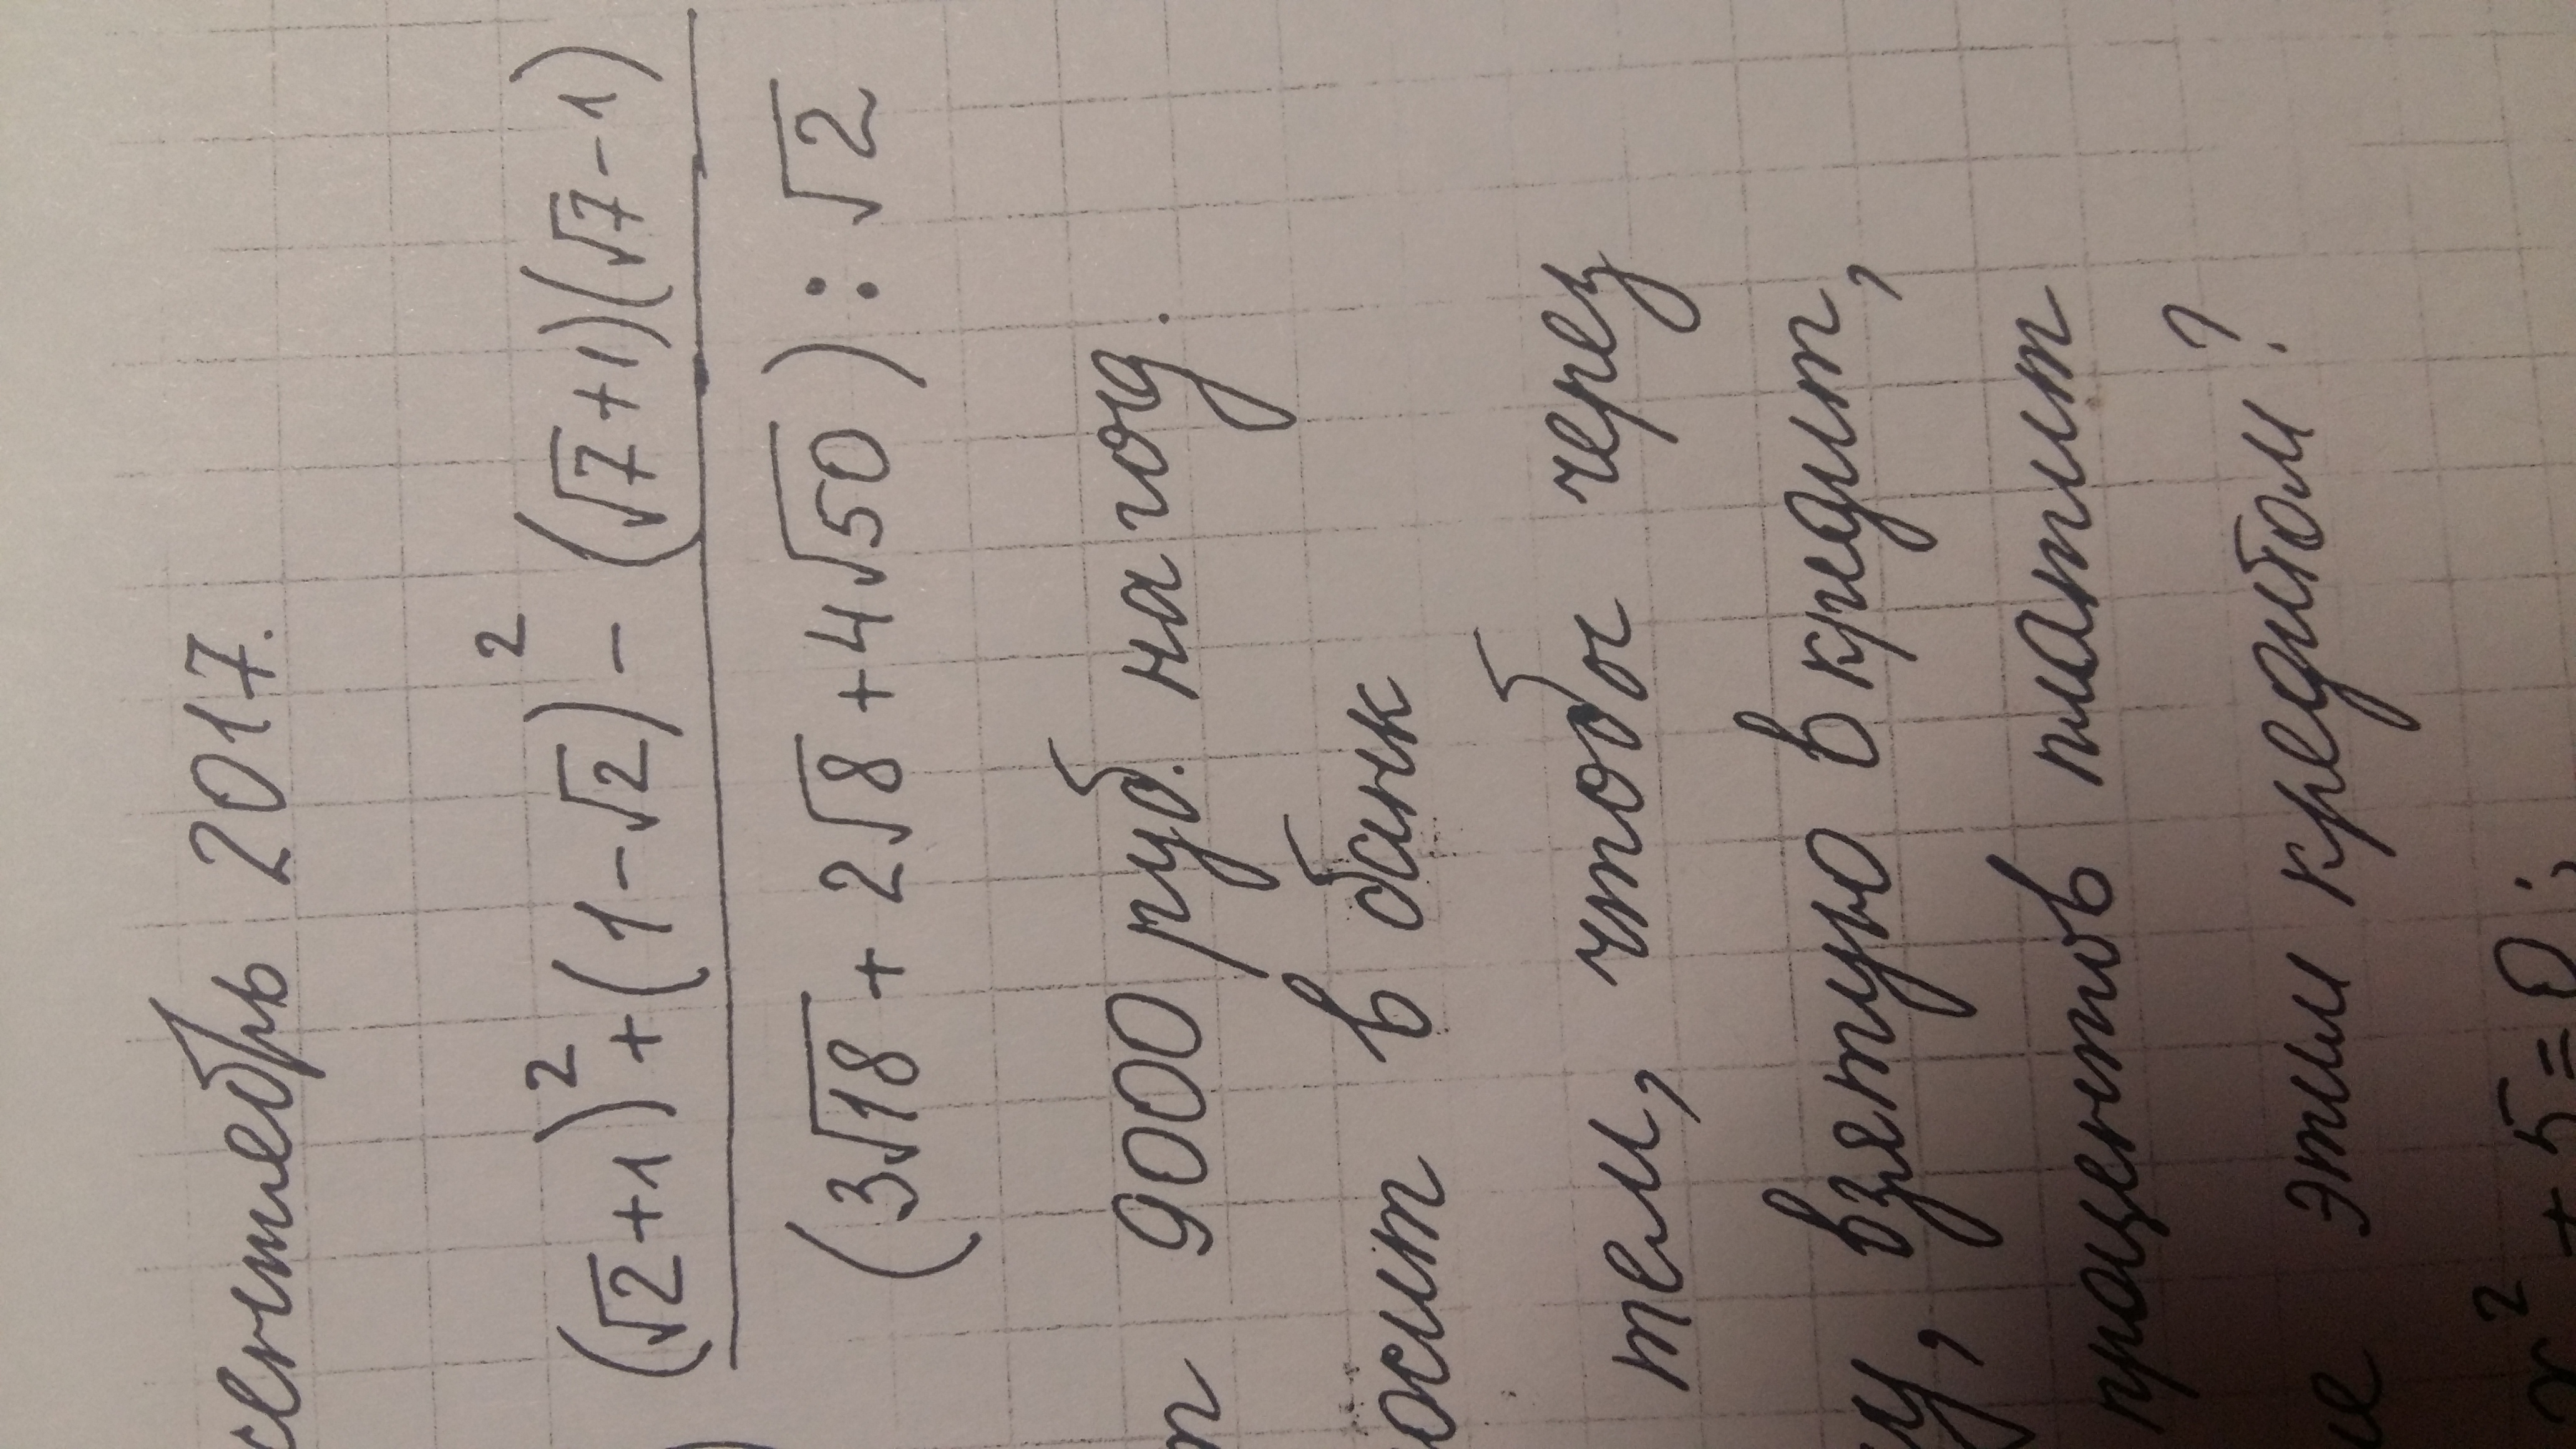 сентябрь 2017.
(√2+1)² + (1-√2)² - (√7+1)(√7-1)
(3√18 + 2√8 + 4√50) : √2
9000 руб. на год.
в банк
тем, чтобы через
взятую в кредит,
процентов платит
этим кредитом?
x² + 5 = 0;